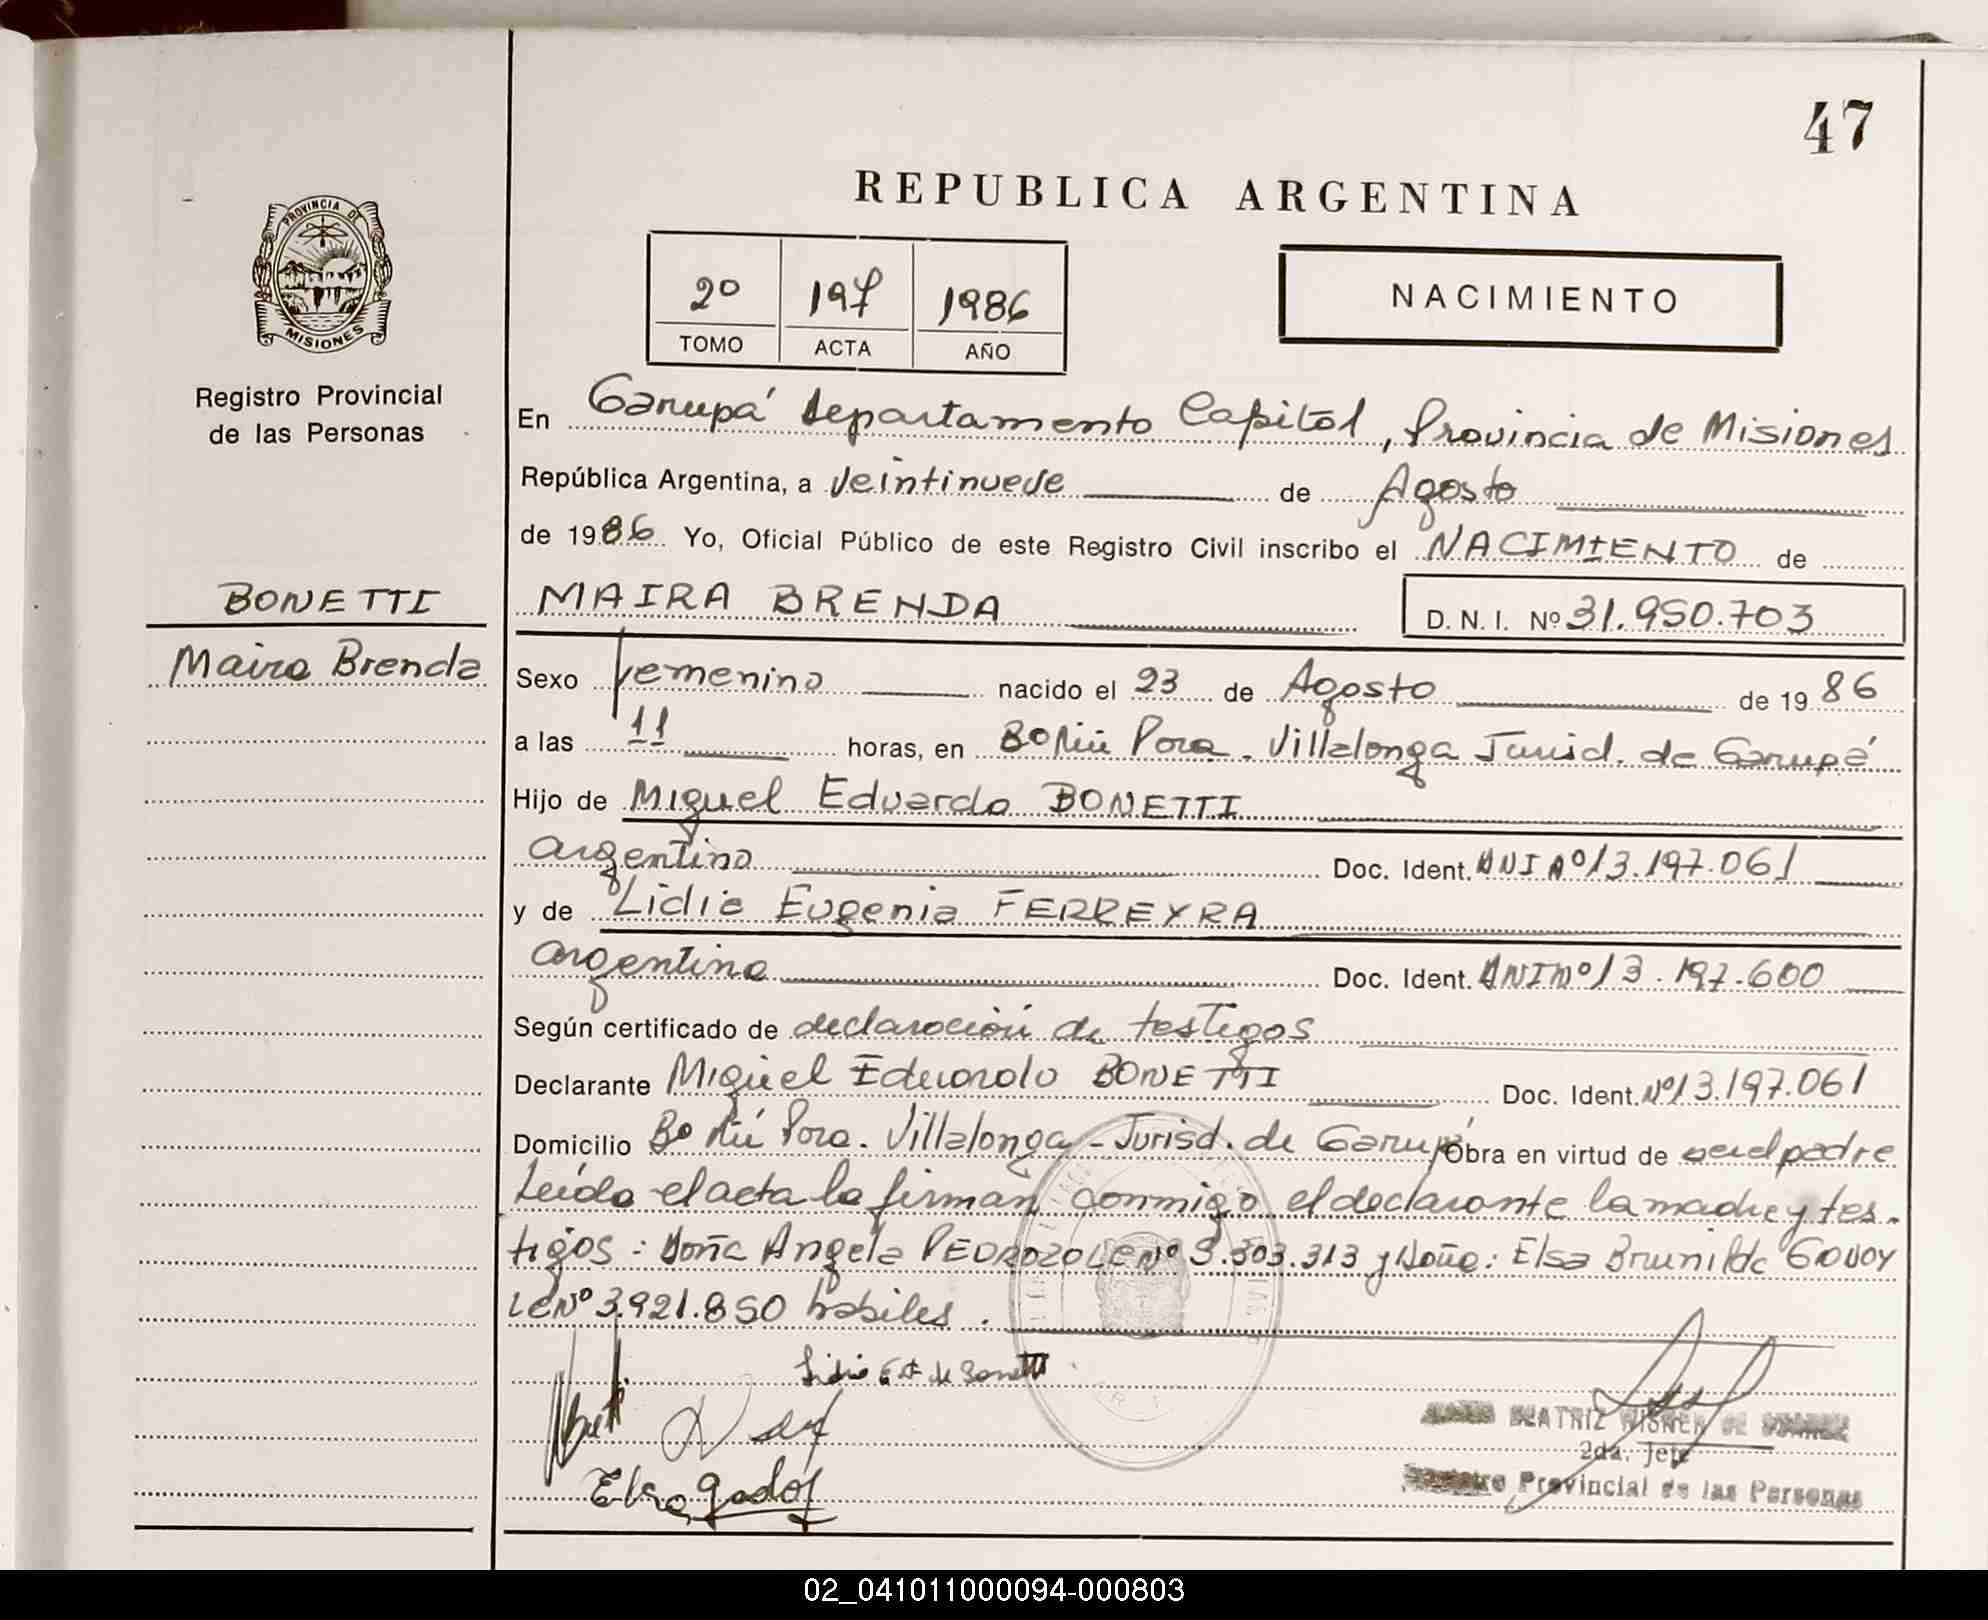 47
REPUBLICA ARGENTINA
PROVINCIA DE
MISIONES
Registro Provincial
de las Personas
2º 197 1986
TOMO ACTA AÑO
NACIMIENTO
En Garupá departamento Capital, Provincia de Misiones
República Argentina, a veintinueve de Agosto
de 1986 Yo, Oficial Público de este Registro Civil inscribo el NACIMIENTO de
BONETTI
MAIRA BRENDA D. N. I. Nº 31.950.703
Maira Brenda
Sexo femenino nacido el 23 de Agosto de 1986
a las 11 horas, en Bº Ñú Pora. Villalonga Jurisd. de Garupá
Hijo de Miguel Eduardo BONETTI
argentino Doc. Ident. DNI Nº 13.197.061
y de Lidia Eugenia FERREYRA
argentina Doc. Ident. DNI Nº 13.197.600
Según certificado de declaración de testigos
Declarante Miguel Eduardo BONETTI Doc. Ident. Nº 13.197.061
Domicilio Bº Ñú Pora. Villalonga - Jurisd. de Garupá Obra en virtud de ser el padre
Leída el acta la firman conmigo el declarante la madre y tes-
tigos: doña Angela PEDROZO LC Nº 3.303.313 y doña: Elsa Brunilda GODOY
LC Nº 3.921.850 habiles.
Lidia de Bonetti
BEATRIZ WISNER DE
2da. Jefe
Elsa Godoy
Registro Provincial de las Personas
02_041011000094-000803